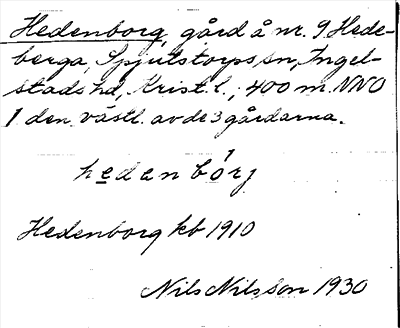 Hedenborg, gård å nr. 9 Hede-
berga, Spjutstorps sn, Ingel-
stads hd, Krist. l., 400 m. NNO
1 den västl. av de 3 gårdarna.
hedenbórj
Hedenborg kb 1910
Nils Nilsson 1930